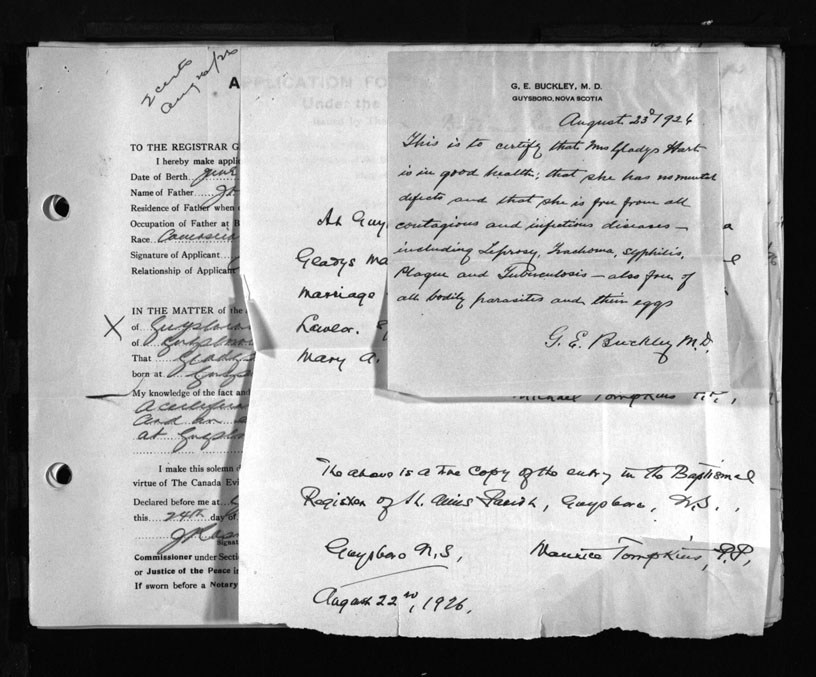 2 certs
A
TO THE REGISTRAR G
I hereby make appli
Date of Berth
Name of Father
Residence of Father when
Occupation of Father at B
Race
Signature of Applicant
Relationship of Applicant
IN THE MATTER of the
of Guysboro
of Guysboro
That Gladys
born at Guys
My knowledge of the fact and
at Guysbo
I make this solemn d
virtue of The Canada Evi
Declared before me at
this 24th day of
Signat
Commissioner under Secti
or Justice of the Peace in
If sworn before a Notary
APPLICATION FO
Under the
At Guy
Gladys Ma
marriage
Lawlor.
Mary A.
Michael Tompkins P.P.,
The above is a true copy of the entry in the Baptismal
Register of St. Anns Parish, Guysboro, N.S.,
Guysboro N.S,
Maurice Tompkins, P.P,
August 22nd, 1926,
G. E. BUCKLEY, M. D.
GUYSBORO, NOVA SCOTIA
August 23d 1926
This is to certify that Miss Gladys Hart
is in good health; that she has no mental
defects and that she is free from all
contagious and infectious diseases —
including Leprosy, Trachoma, Syphilis,
Plague and Tuberculosis — also free of
all bodily parasites and their eggs
G. E. Buckley M.D.